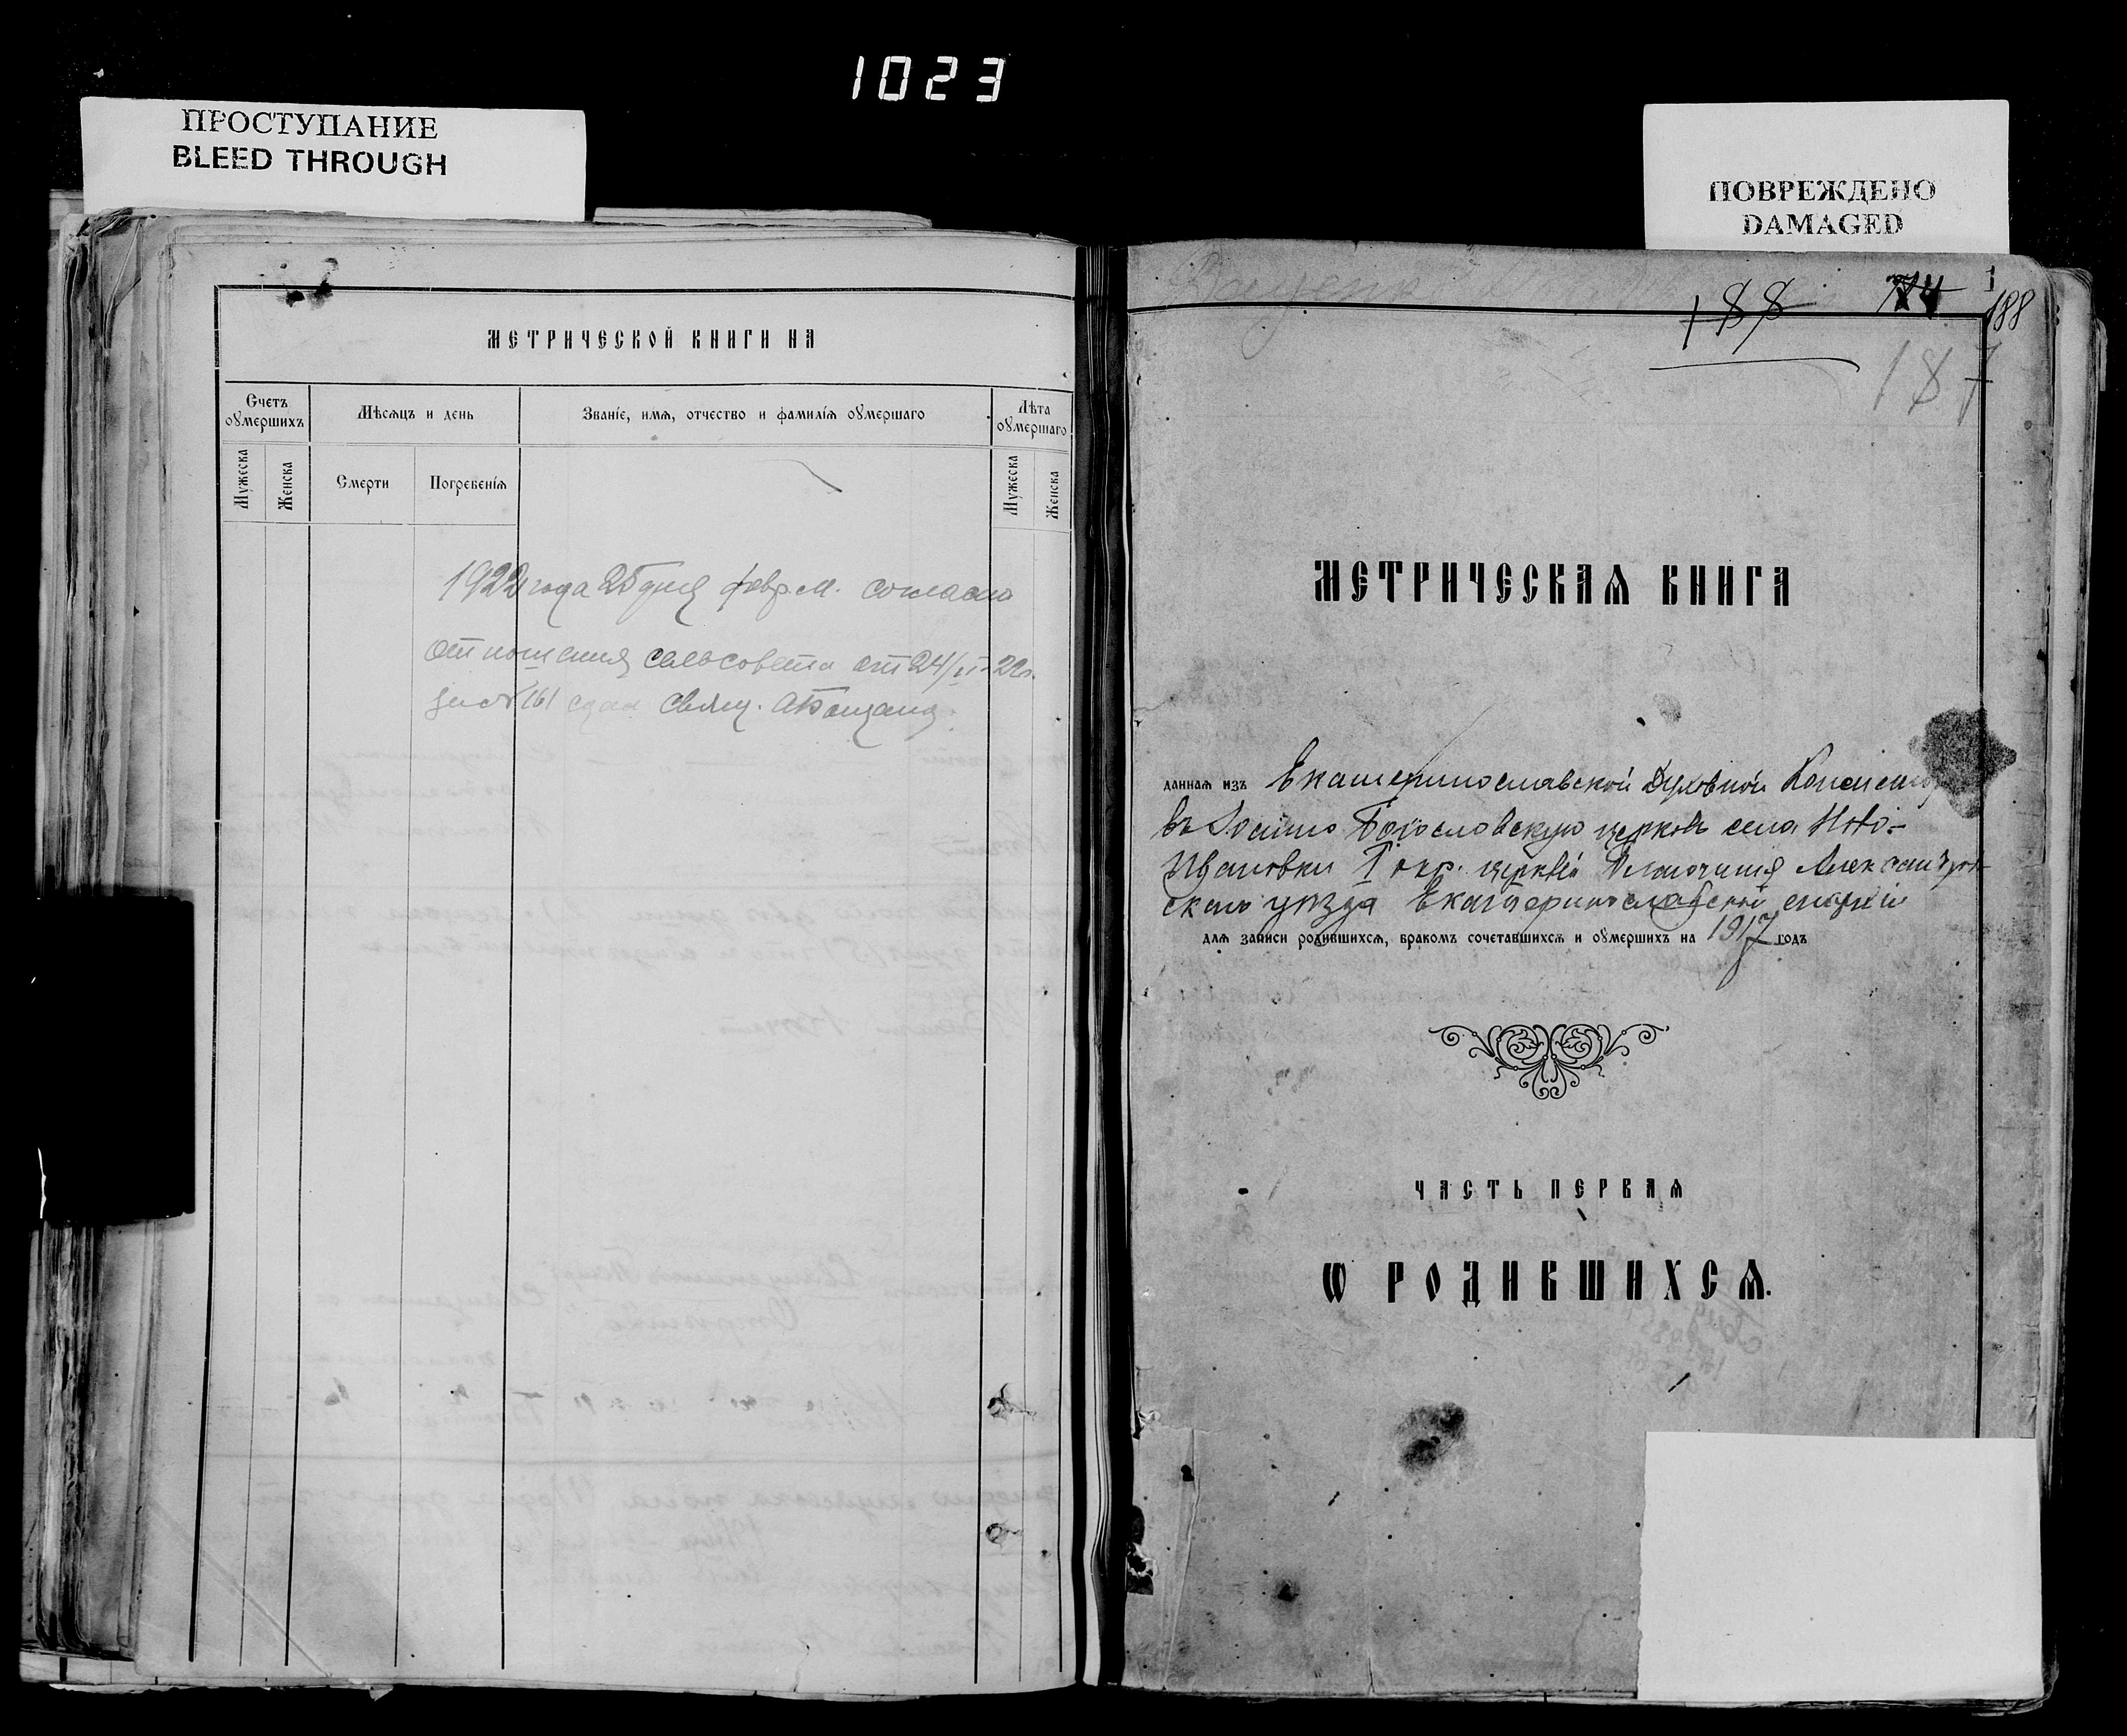 1023
ПРОСТУПАНИЕ
BLEED THROUGH
ПОВРЕЖДЕНО
DAMAGED
МЕТРИЧЕСКОЙ КНИГИ НА
Счетъ ѹмершихъ
Мѣсяцъ и день
Званіе, имя, отчество и фамилія ѹмершаго
Лѣта ѹмершаго
Мужеска
Женска
Смерти
Погребенія
Мужеска
Женска
1922 года 25 дня февр. м. согласно
отношения сельсовета от 24/II-22г.
за № 161 сдал свящ.
188
74
1
188
187
МЕТРИЧЕСКАЯ КНИГА
данная изъ Екатеринославской Духовной
въ Іоанно Богословскую церковь села Ново-
Ивановки I окр. церквей Благочинія Александров-
скаго уѣзда Екатеринославской епархіи
для записи родившихся, бракомъ сочетавшихся и ѹмершихъ на 1917 годъ
ЧАСТЬ ПЕРВАЯ
Ѡ РОДИВШИХСЯ.